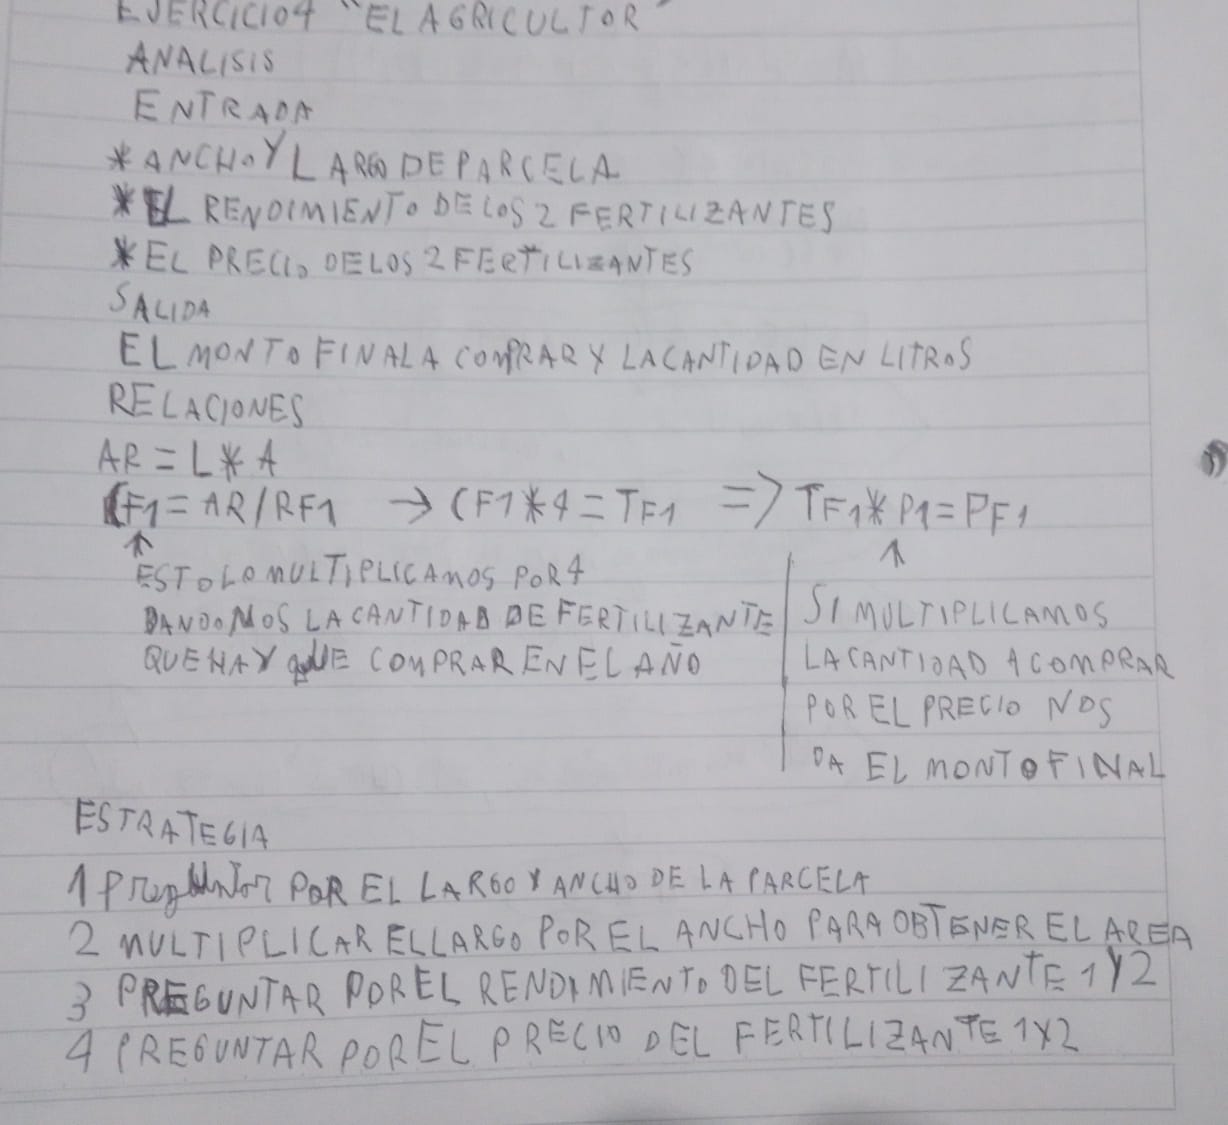 EJERCICIO 4 "EL AGRICULTOR"
ANALISIS
ENTRADA
* ANCHO Y LARGO DE PARCELA
* EL RENDIMIENTO DE LOS 2 FERTILIZANTES
* EL PRECIO DE LOS 2 FERTILIZANTES
SALIDA
EL MONTO FINAL A COMPRAR Y LA CANTIDAD EN LITROS
RELACIONES
AR = L * A
CF1 = AR/RF1 → CF1 * 4 = TF1 => TF1 * P1 = PF1
↑
ESTO LO MULTIPLICAMOS POR 4
DANDONOS LA CANTIDAD DE FERTILIZANTE
QUE HAY QUE COMPRAR EN EL AÑO
↑
SI MULTIPLICAMOS
LA CANTIDAD A COMPRAR
POR EL PRECIO NOS
DA EL MONTO FINAL
ESTRATEGIA
1 Preguntar POR EL LARGO Y ANCHO DE LA PARCELA
2 MULTIPLICAR EL LARGO POR EL ANCHO PARA OBTENER EL AREA
3 PREGUNTAR POR EL RENDIMIENTO DEL FERTILIZANTE 1 Y 2
4 PREGUNTAR POR EL PRECIO DEL FERTILIZANTE 1 Y 2